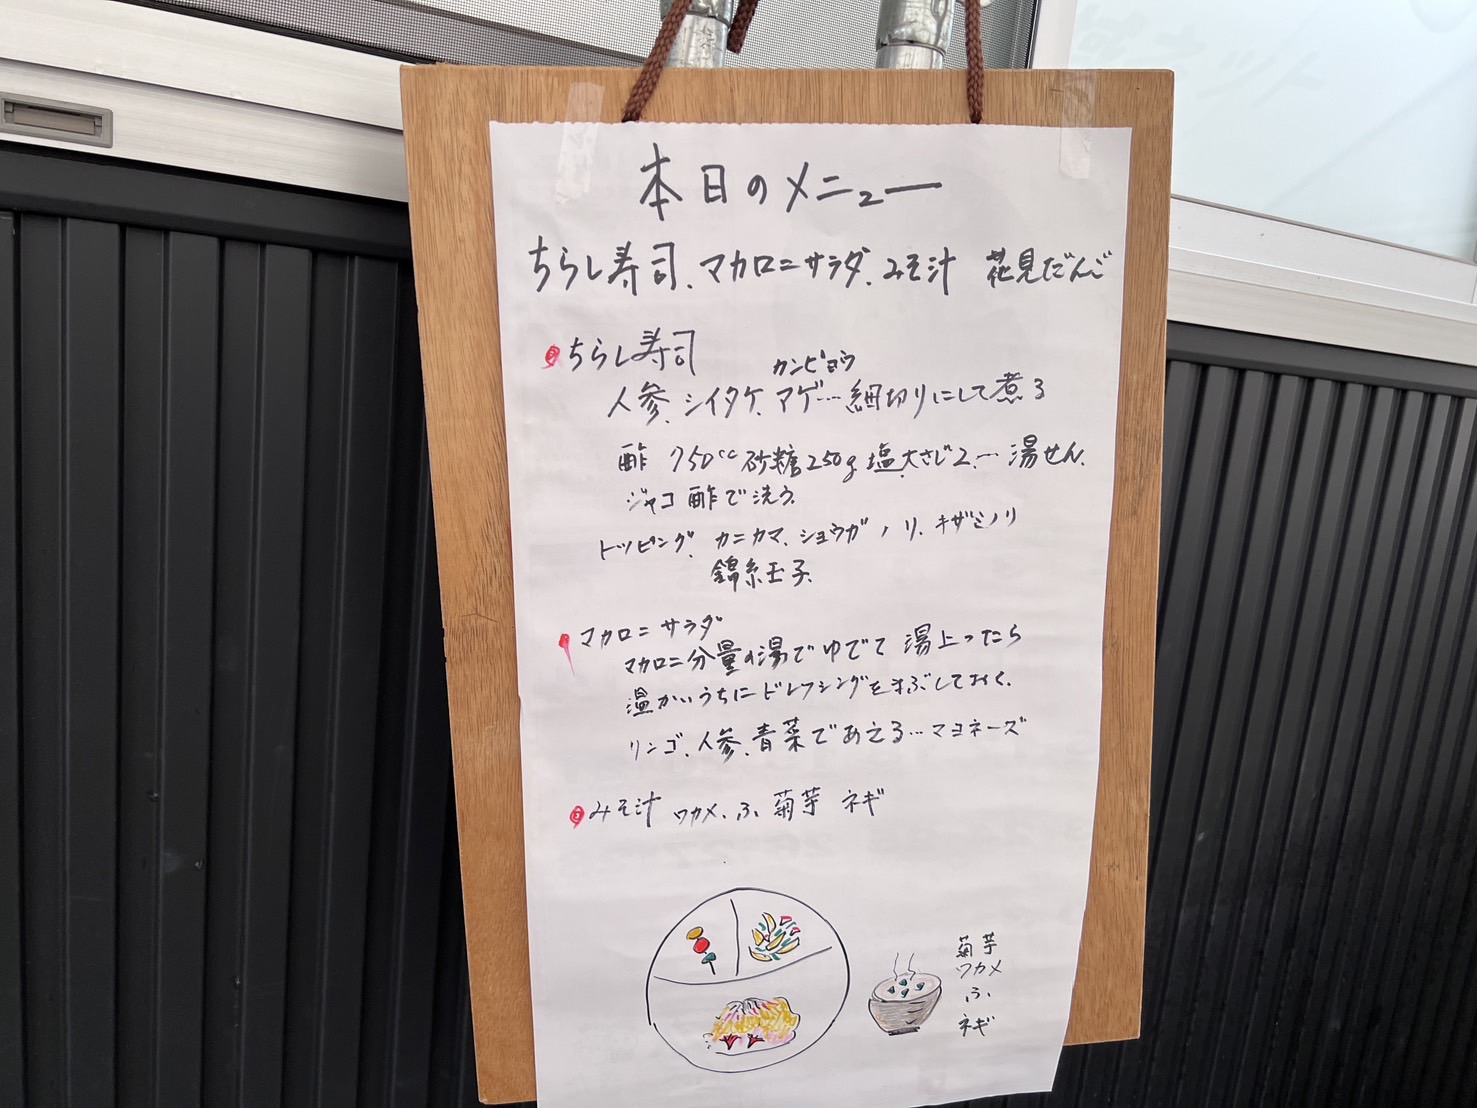 本日のメニュー
ちらし寿司、マカロニサラダ、みそ汁 花見だんご
ちらし寿司
カンピョウ
人参、シイタケ、アゲ…細切りにして煮る
酢 750cc 砂糖250g 塩大さじ2…湯せん
ジャコ 酢で洗う
トッピング、カニカマ、ショウガ ノリ、キザミノリ
錦糸玉子
マカロニサラダ
マカロニ分量の湯でゆでて 湯上ったら
温かいうちにドレッシングをまぶしておく、
リンゴ、人参、青菜であえる…マヨネーズ
みそ汁 ワカメ、ふ 菊芋 ネギ
菊芋
ワカメ
ふ
ネギ